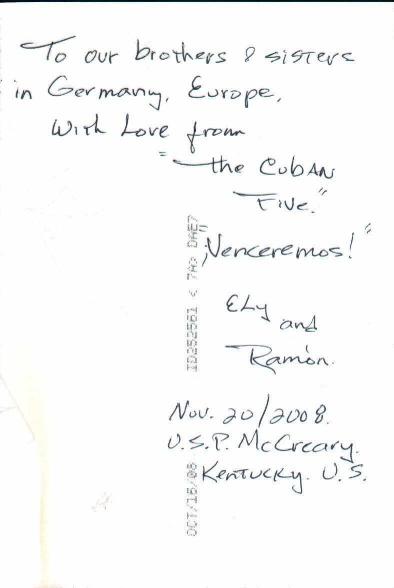 To our brothers & sisters
in Germany, Europe,
With Love from
"the Cuban
Five."
"¡Venceremos!"
Ely
and
Ramón.
Nov. 20/2008.
U.S.P. McCreary.
Kentucky. U.S.
ID252561 < 7A> DAE7
OCT/16/08